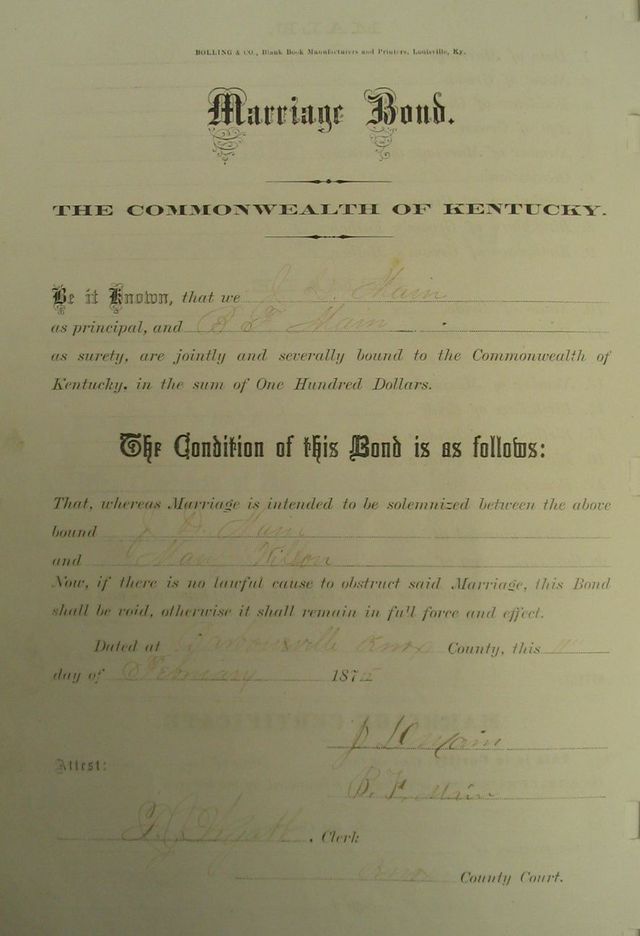 BOLLING & CO., Blank Book Manufacturers and Printers, Louisville, Ky.
Marriage Bond.
THE COMMONWEALTH OF KENTUCKY.
Be it Known, that we J. D. Main
as principal, and B F Main
as surety, are jointly and severally bound to the Commonwealth of
Kentucky, in the sum of One Hundred Dollars.
The Condition of this Bond is as follows:
That, whereas Marriage is intended to be solemnized between the above
bound J D. Main
and Wilson
Now, if there is no lawful cause to obstruct said Marriage, this Bond
shall be void, otherwise it shall remain in full force and effect.
Dated at Barbourville Knox County, this
day of February 187
J D Main
Attest:
B. F. Main
Clerk
Knox County Court.